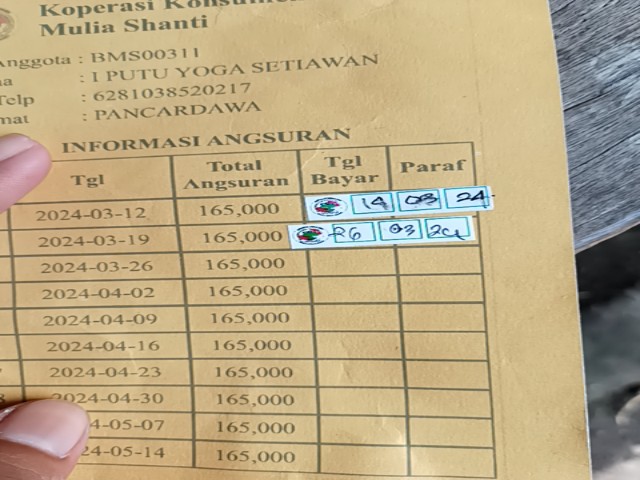 Koperasi
Mulia Shanti
Anggota : BMS00311
: I PUTU YOGA SETIAWAN
Telp : 6281038520217
: PANCARDAWA
INFORMASI ANGSURAN
Tgl Total Angsuran Tgl Bayar Paraf
2024-03-12 165,000 14 03 24
2024-03-19 165,000 26 03 24
2024-03-26 165,000
2024-04-02 165,000
2024-04-09 165,000
2024-04-16 165,000
2024-04-23 165,000
2024-04-30 165,000
4-05-07 165,000
24-05-14 165,000